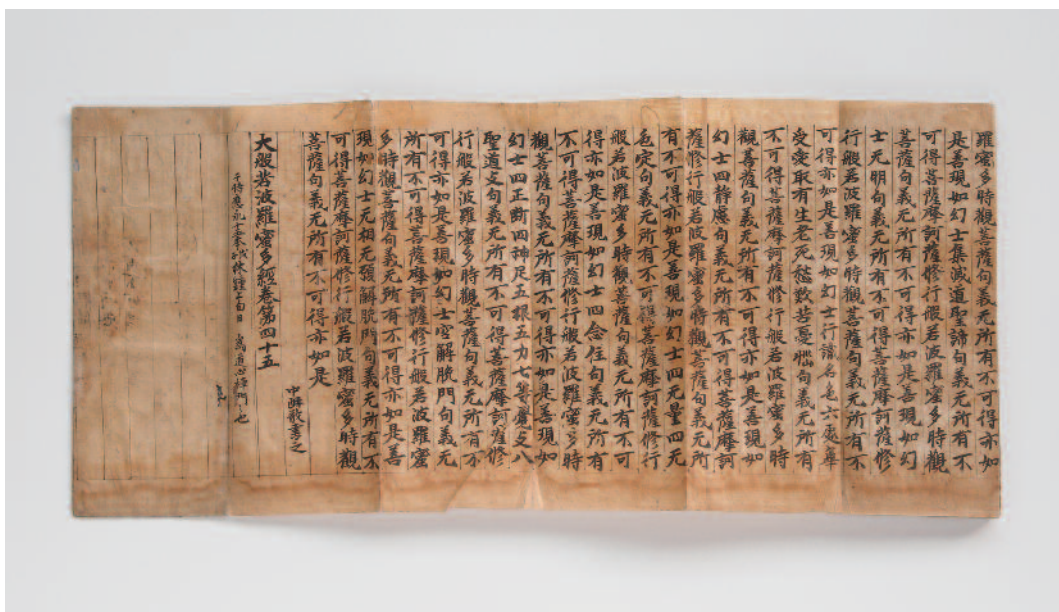 羅蜜多時觀菩薩句義无所有不可得亦如
是善現如幻士集滅道聖諦句義无所有不
可得菩薩摩訶薩修行般若波羅蜜多時觀
菩薩句義无所有不可得亦如是善現如幻
士无明句義无所有不可得菩薩摩訶薩修
行般若波羅蜜多時觀菩薩句義无所有不
可得亦如是善現如幻士行識名色六處
受愛取有生老死愁歎苦憂惱句義无所有
不可得菩薩摩訶薩修行般若波羅蜜多時
觀菩薩句義无所有不可得亦如是善現如
幻士四静慮句義无所有不可得菩薩摩訶
薩修行般若波羅蜜多時觀菩薩句義无所
有不可得亦如是善現如幻士四无量四无
色定句義无所有不可得菩薩摩訶薩修行
般若波羅蜜多時觀菩薩句義无所有不可
得亦如是善現如幻士四念住句義无所有
不可得菩薩摩訶薩修行般若波羅蜜多時
觀菩薩句義无所有不可得亦如是善現如
幻士四正断四神足五根五力七等覺支八
聖道支句義无所有不可得菩薩摩訶薩修
行般若波羅蜜多時觀菩薩句義无所有不
可得亦如是善現如幻士空解脫門句義无
所有不可得菩薩摩訶薩修行般若波羅蜜
多時觀菩薩句義无所有不可得亦如是善
現如幻士无相无願解脫門句義无所有不
可得菩薩摩訶薩修行般若波羅蜜多時觀
菩薩句義无所有不可得亦如是
書之
大般若波羅蜜多經卷第四十五
應永十